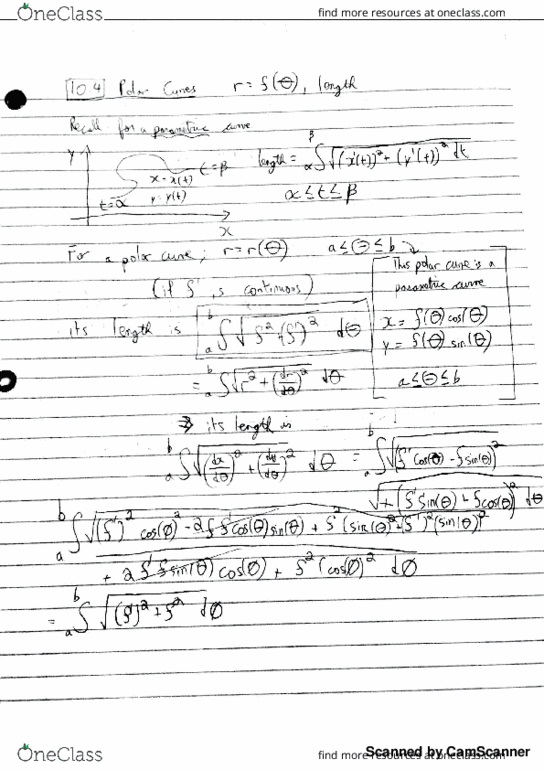 OneClass
find more resources at oneclass.com
10.4 Polar Curves r = f(θ), length
Recall for a parametric curve
y
t=β
x = x(t)
t=α y = y(t)
x
length = α∫β √((x'(t))² + (y'(t))²) dt
α ≤ t ≤ β
For a polar curve, r = r(θ) a ≤ θ ≤ b
(if f' is continuous)
its length is a∫b √(f² + (f')²) dθ
= a∫b √(r² + (dr/dθ)²) dθ
This polar curve is a
parametric curve
x = f(θ) cos(θ)
y = f(θ) sin(θ)
a ≤ θ ≤ b
⇒ its length is
a∫b √((dx/dθ)² + (dy/dθ)²) dθ = a∫b √(f' cos(θ) - f sin(θ))²
√+ (f' sin(θ) + f cos(θ))² dθ
a∫b √(f')² cos(θ)² - 2f f' cos(θ) sin(θ) + f² (sin(θ)² + (f')² (sin(θ)²
+ 2 f' f sin(θ) cos(θ) + f² (cos(θ)² dθ
= a∫b √(f')² + f² dθ
OneClass
find more resources at oneclass.com
Scanned by CamScanner